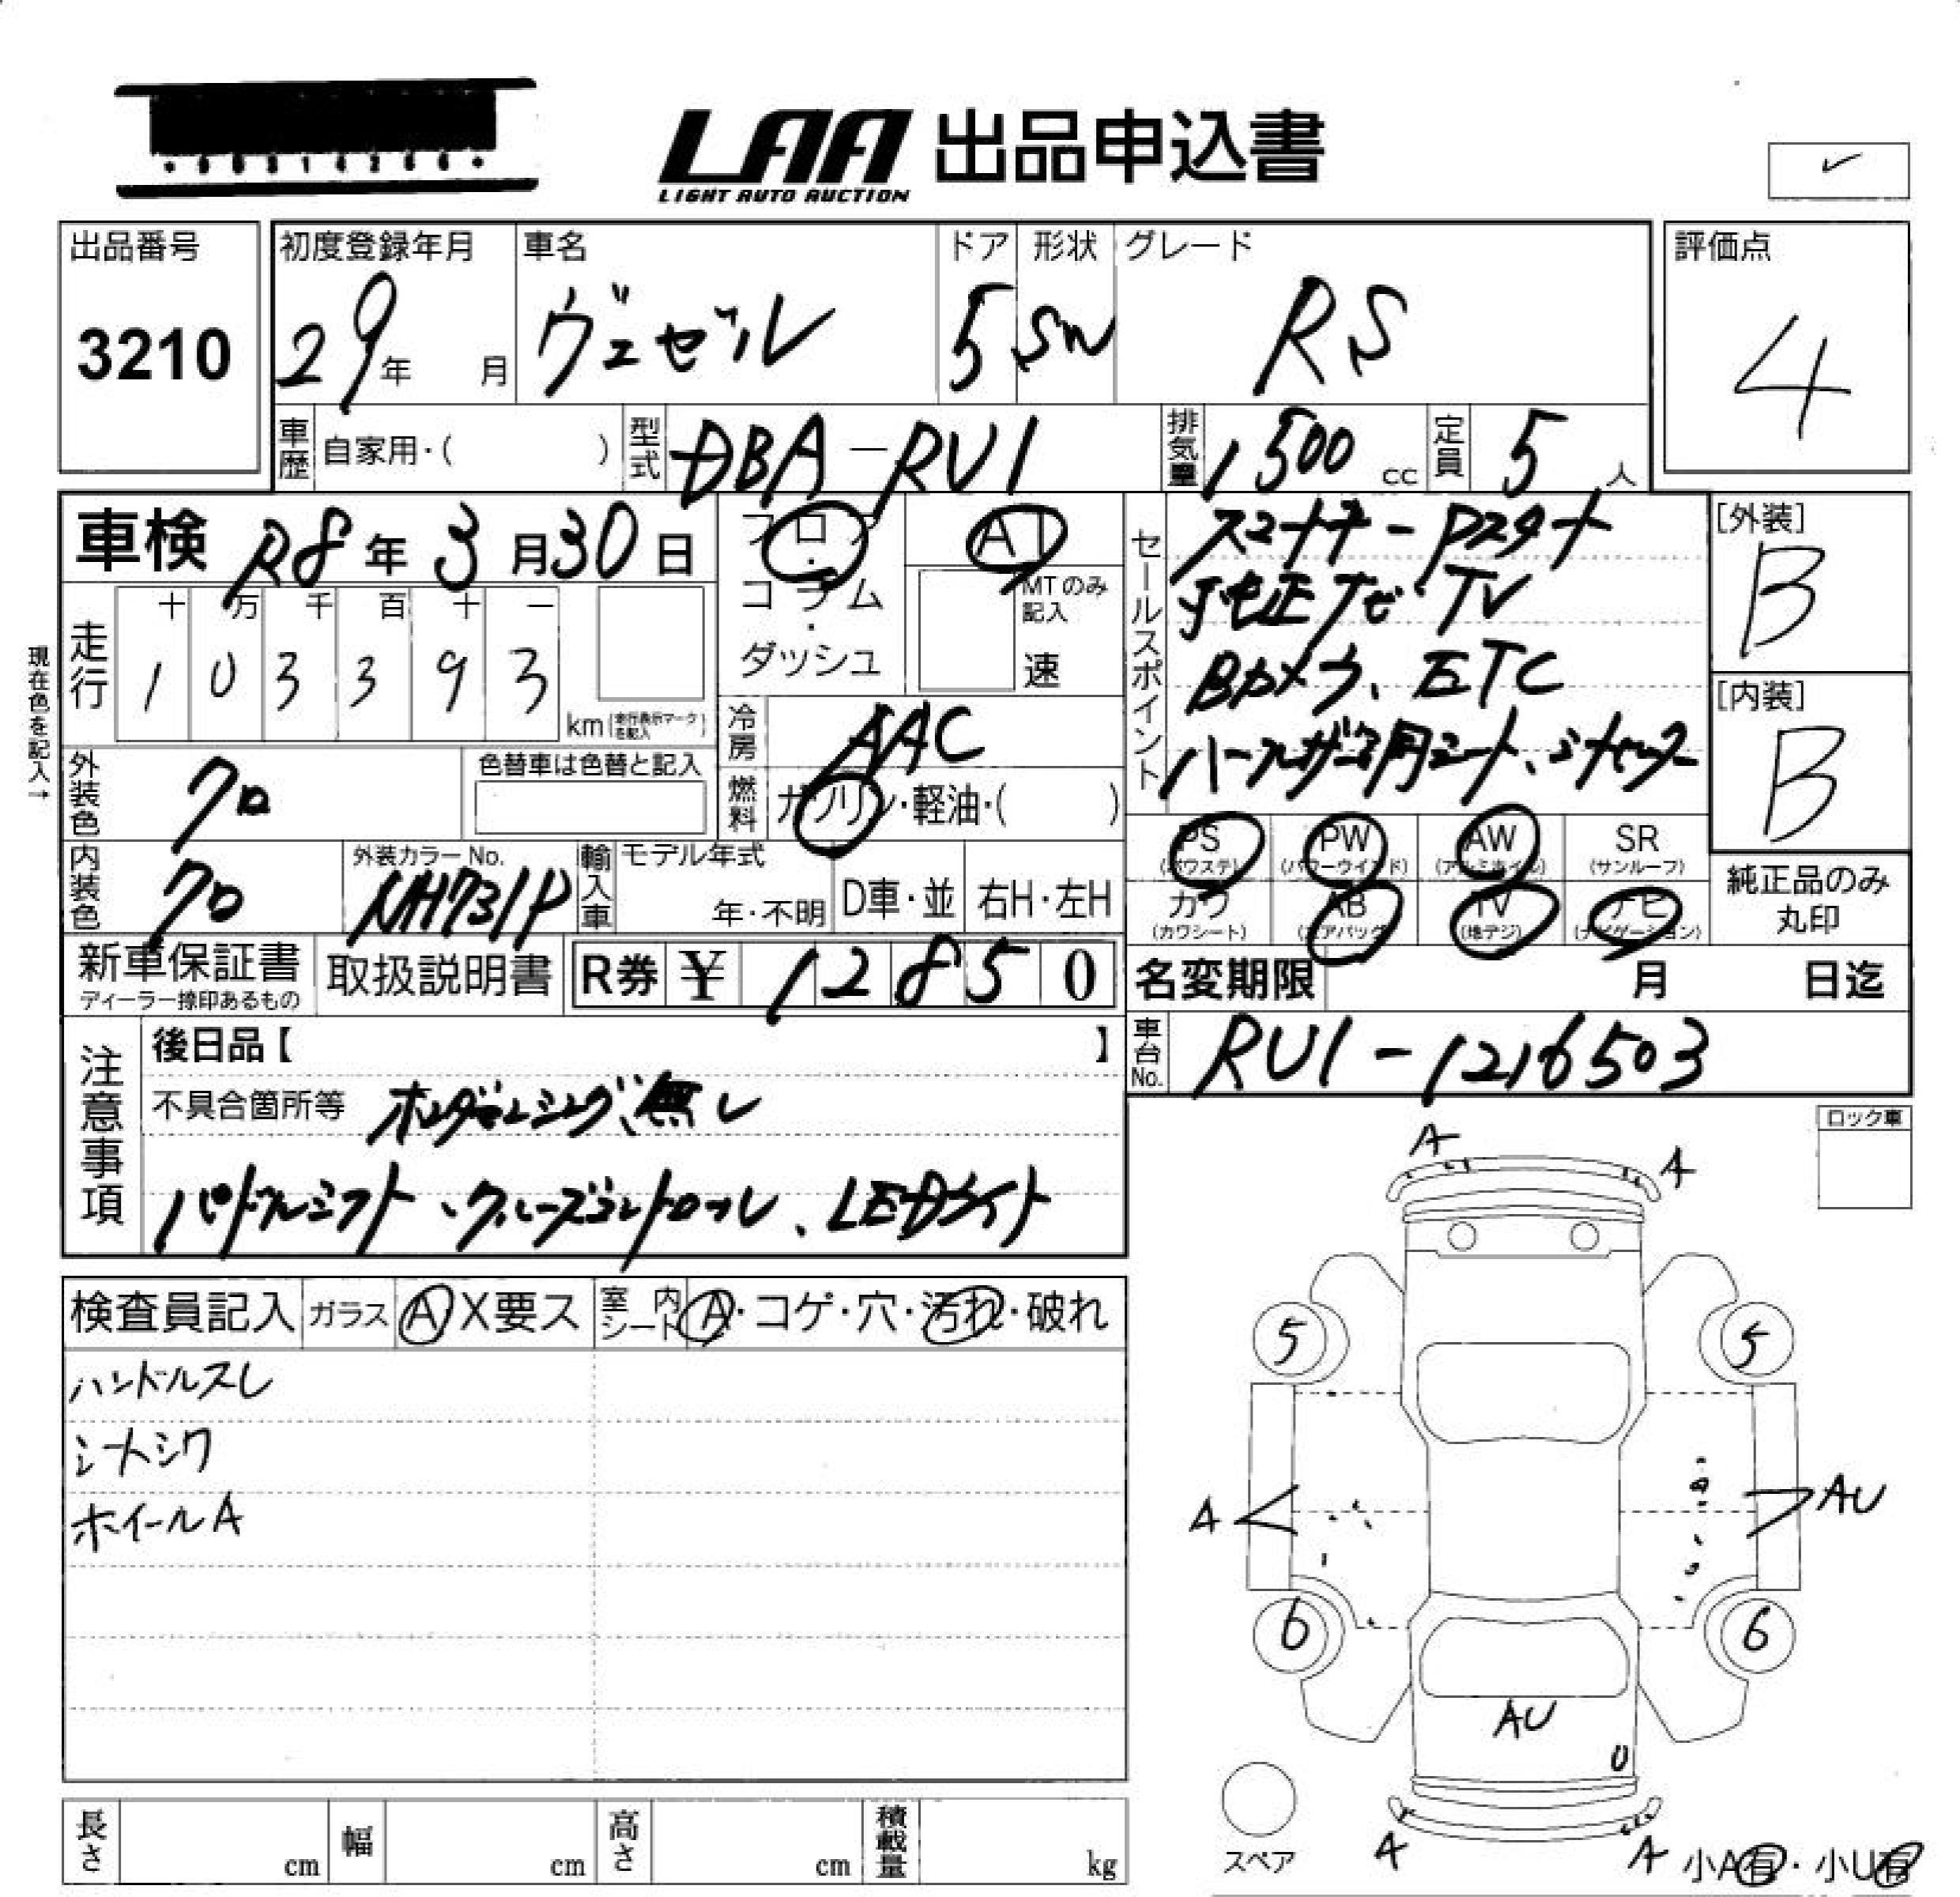 LAA 出品申込書
LIGHT AUTO AUCTION
✓
出品番号 初度登録年月 車名 ドア 形状 グレード 評価点
3210 29年 月 ヴェゼル 5 SW RS 4
車歴 自家用・( ) 型式 DBA-RU1 排気量 1500cc 定員 5人
車検 R8年3月30日
走行 十 万 千 百 十 一
1 0 3 3 9 3 km (走行表示マークを記入)
現在色を記入→
フロア・コラム・ダッシュ
AT
MTのみ記入
速
冷房 AAC
燃料 ガソリン・軽油・( )
外装色 クロ 色替車は色替と記入
内装色 クロ 外装カラーNo. NH731P
輸入車 モデル年式 年・不明 D車・並 右H・左H
セールスポイント
スマートキー Pスタート
純正ナビ TV
Bカメラ、ETC
[外装] B
[内装] B
PS (パワステ) PW (パワーウインド) AW (アルミホイル) SR (サンルーフ)
カワ (カワシート) AB (エアバッグ) TV (地デジ) ナビ (ナビゲーション)
純正品のみ丸印
新車保証書 ディーラー捺印あるもの 取扱説明書 R券 ¥ 12850
名変期限 月 日迄
車台No. RU1-1216503
注意事項
後日品【 】
不具合箇所等 ホンダセンシング、無し
パドルシフト、クルーズコントロール、LEDライト
ロック車
検査員記入 ガラス A X要ス 室内シート A・コゲ・穴・汚れ・破れ
ハンドルスレ
シートシワ
ホイールA
A A
5 5
A AU
6 6
AU
U
スペア
A A 小A有・小U有
長さ cm 幅 cm 高さ cm 積載量 kg